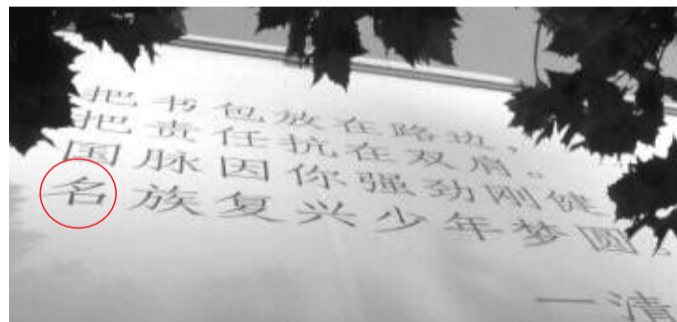 把书包放在路边，
把责任抗在双肩。
国脉因你强劲刚健
名族复兴少年梦圆。
一清